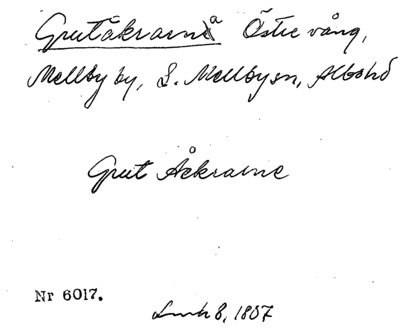 Grutåkrarna Östre vång,
Mellby by, S. Mellby sn, Albo hd
Grut Åkrarne
Nr 6017.
Lmh 8, 1807